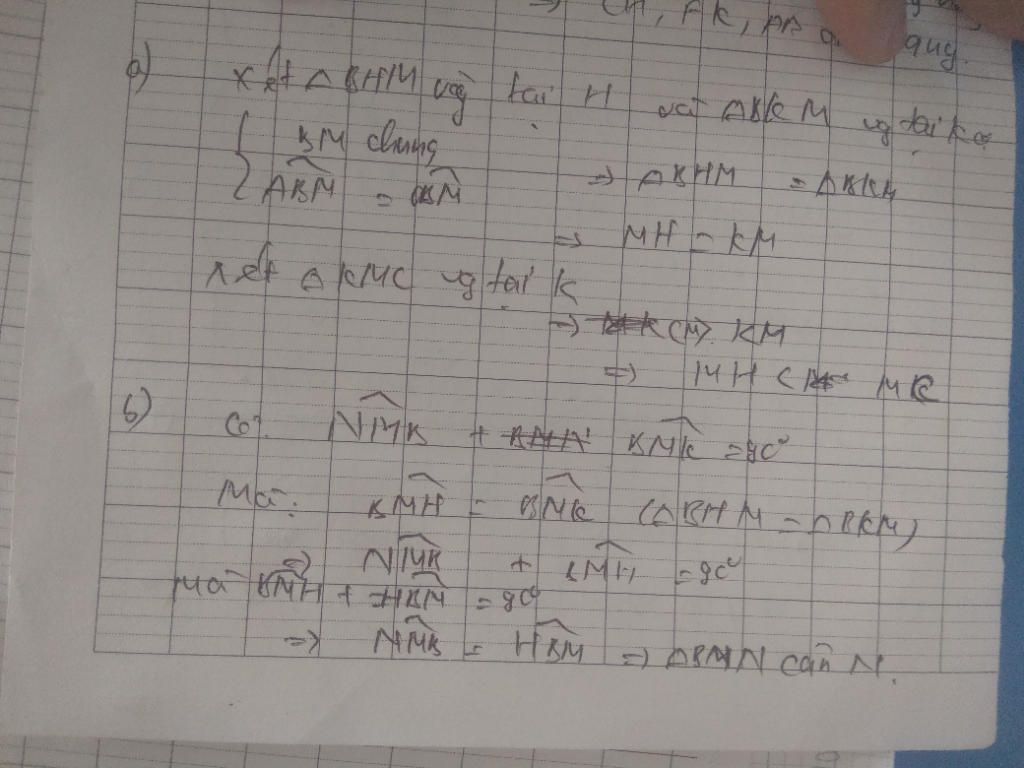 ⇒ CH, AK, AB quy.
a) Xét ΔBHM vg tại H và ΔBKM vg tại K có
{ BM chung
ABM = CBM ⇒ ΔBHM = ΔBKM
⇒ MH = KM
Xét ΔKMC vg tại K
⇒ CM > KM
⇒ MH < MC
b) Có: NMB + BMK = 90°
Mà: BMH = BMK (ΔBHM = ΔBKM)
⇒ NMB + BMH = 90°
Mà BMH + HBM = 90°
⇒ NMB = HBM ⇒ ΔBMN cân N.